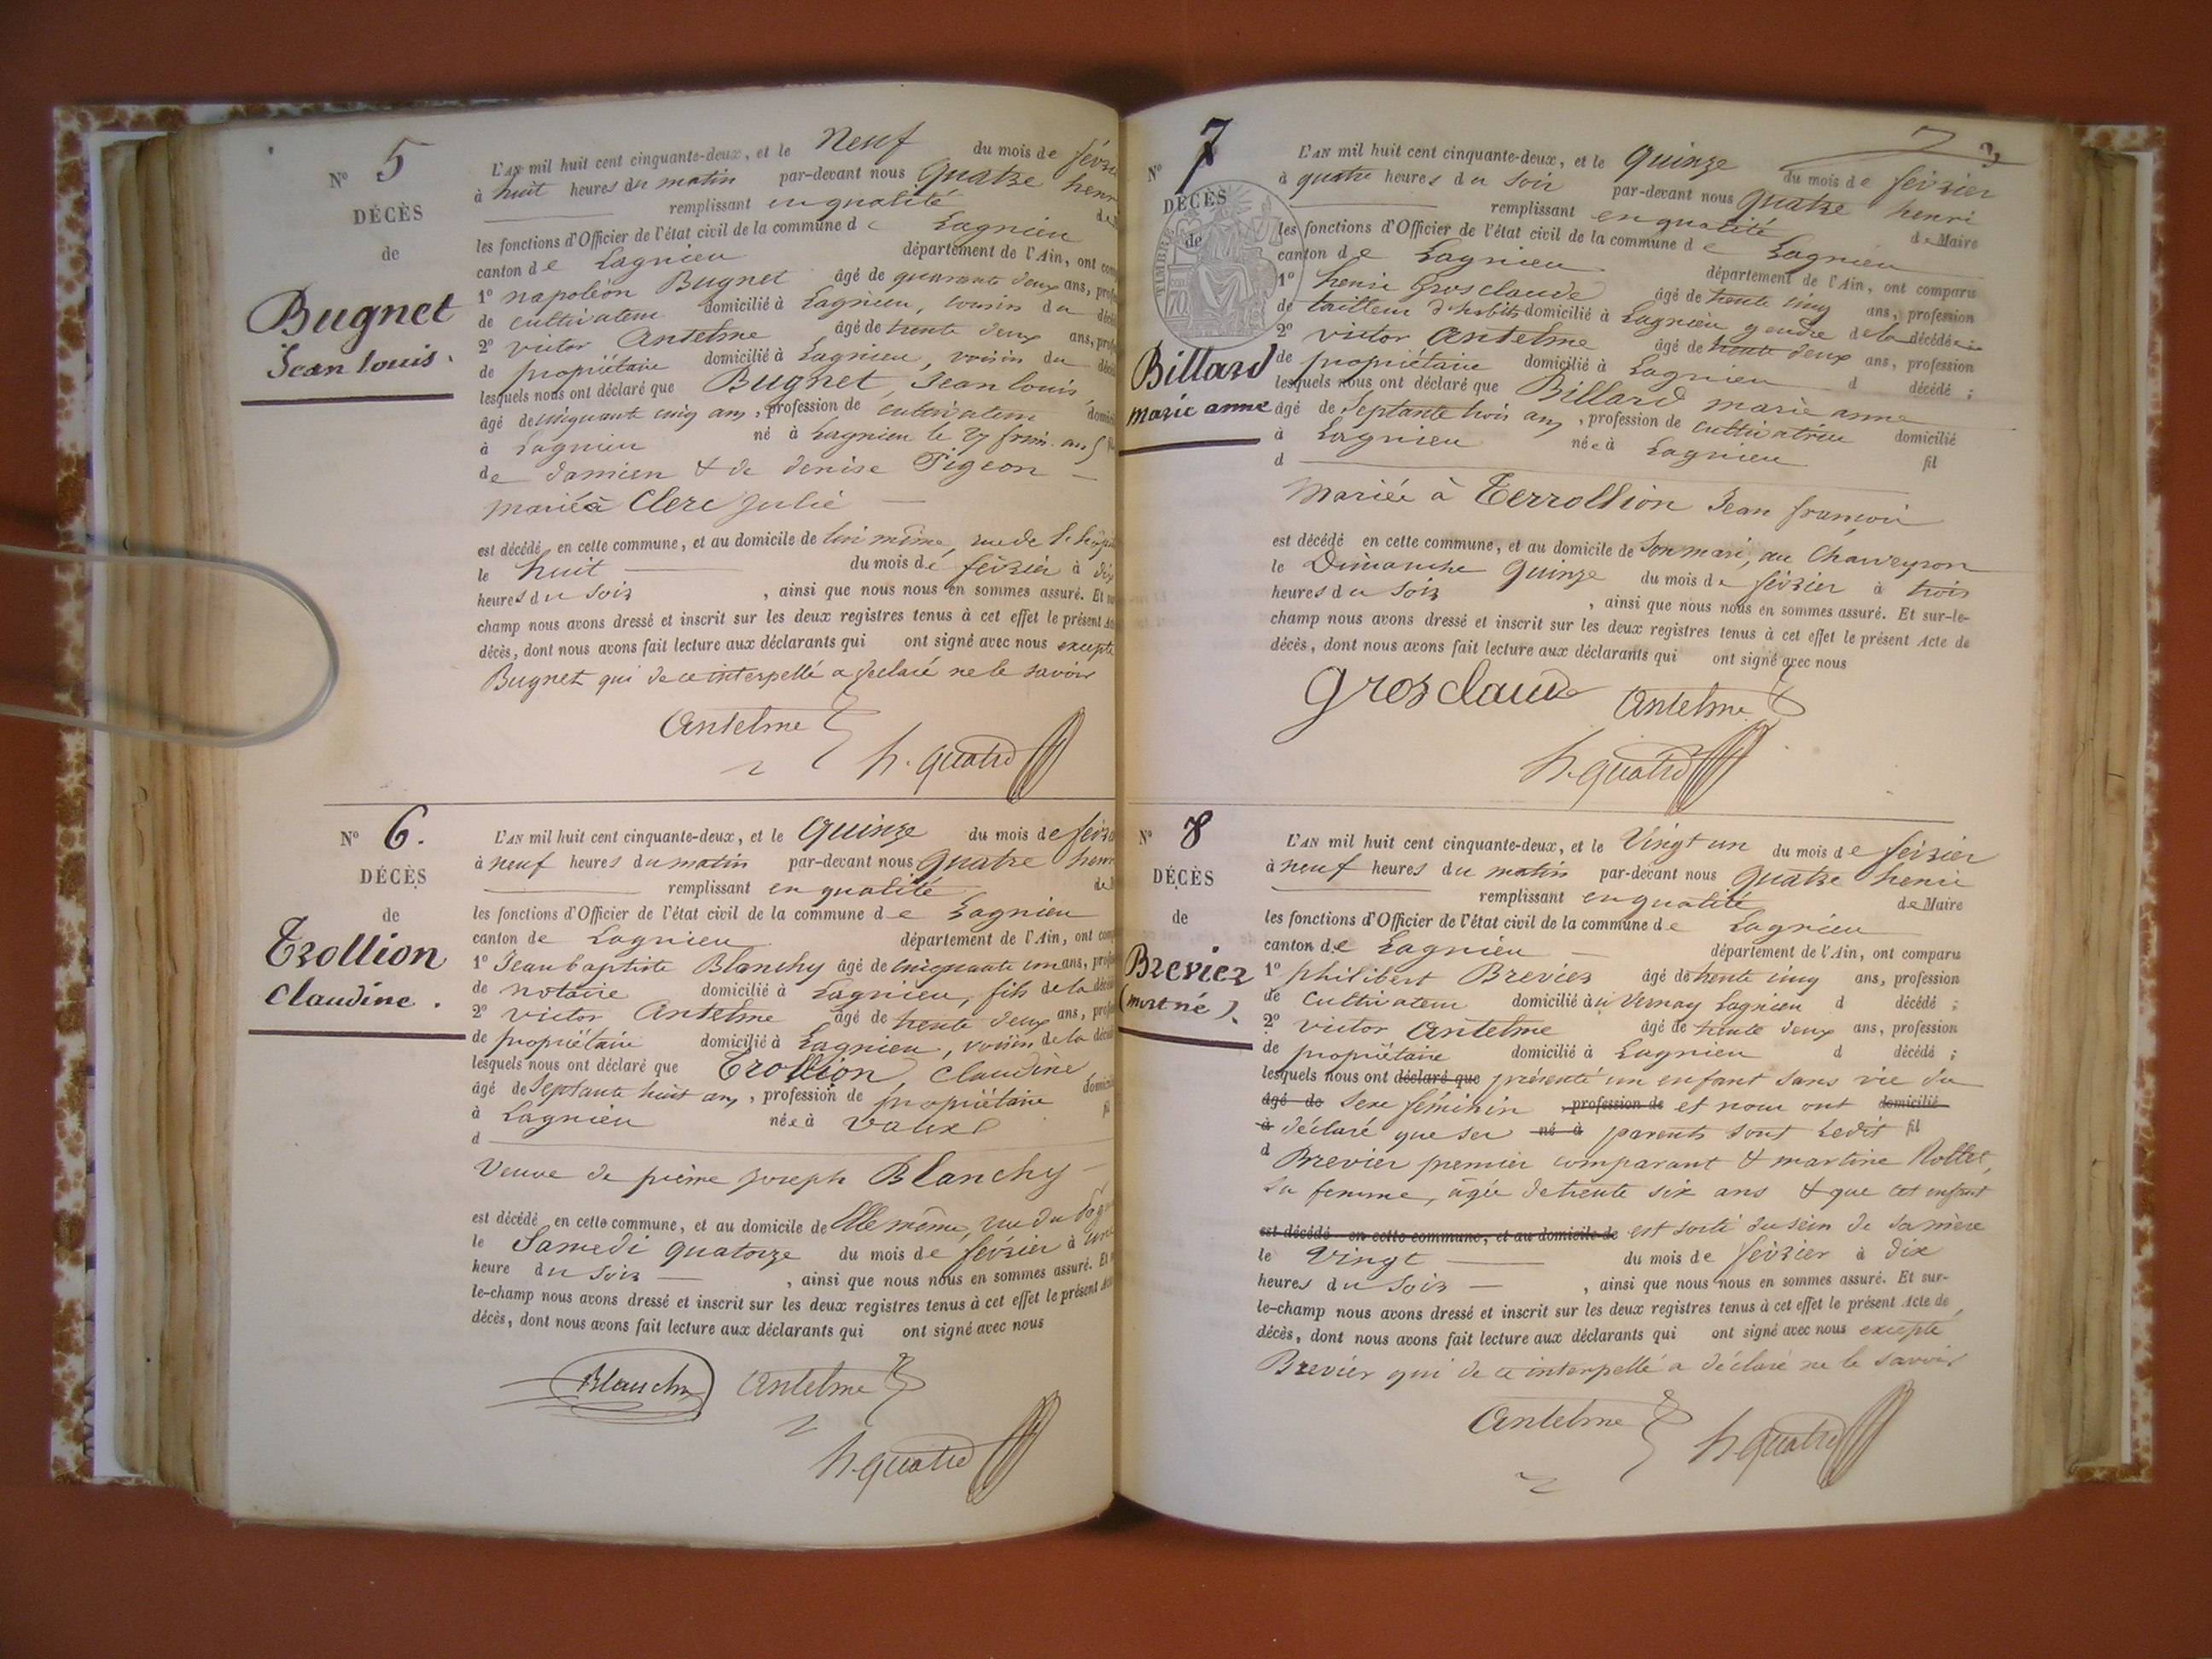 N° 5
DÉCÈS
de
Bugnet
Jean louis.
L'AN mil huit cent cinquante-deux, et le Neuf du mois de
à huit heures du matin par-devant nous Quatre
remplissant en qualité
les fonctions d'Officier de l'état civil de la commune de Lagnieu
canton de Lagnieu département de l'Ain, ont
1° napoléon Bugnet âgé de quarante deux ans,
de cultivateur domicilié à Lagnieu, cousin du
2° victor Antelme âgé de trente deux ans,
de propriétaire domicilié à Lagnieu, voisin du
lesquels nous ont déclaré que Bugnet, Jean louis
âgé de cinquante cinq ans, profession de cultivateur
à Lagnieu né à Lagnieu le 27 frim. an 5
de damien & de denise Pigeon
marié à Clerc Julie
est décédé en cette commune, et au domicile de lui même, rue de
le huit du mois de février à dix
heures du soir, ainsi que nous nous en sommes assuré. Et
champ nous avons dressé et inscrit sur les deux registres tenus à cet effet le présent
décès, dont nous avons fait lecture aux déclarants qui ont signé avec nous excepté
Bugnet qui de ce interpellé a déclaré ne le savoir
Antelme
h. quatre
N° 6.
DÉCÈS
de
Trollion
Claudine.
L'AN mil huit cent cinquante-deux, et le Quinze du mois de
à neuf heures du matin par-devant nous Quatre
remplissant en qualité
les fonctions d'Officier de l'état civil de la commune de Lagnieu
canton de Lagnieu département de l'Ain, ont
1° Jean baptiste Blanchy âgé de cinquante un ans,
de notaire domicilié à Lagnieu, fils de la
2° victor Antelme âgé de trente deux ans,
de propriétaire domicilié à Lagnieu, voisin de la
lesquels nous ont déclaré que Trollion, Claudine
âgé de Septante huit ans, profession de propriétaire
à Lagnieu née à Vaux
d
Veuve de pierre joseph Blanchy
est décédé en cette commune, et au domicile de Elle même, rue du
le Samedi quatorze du mois de février à une
heure du soir, ainsi que nous nous en sommes assuré. Et
le-champ nous avons dressé et inscrit sur les deux registres tenus à cet effet le présent
décès, dont nous avons fait lecture aux déclarants qui ont signé avec nous
Blanchy Antelme
h. quatre
7
N° 7
DÉCÈS
de
TIMBRE
Billard
marie anne
L'AN mil huit cent cinquante-deux, et le Quinze du mois de février
à quatre heures du soir par-devant nous Quatre henri
remplissant en qualité de Maire
les fonctions d'Officier de l'état civil de la commune de Lagnieu
canton de Lagnieu département de l'Ain, ont comparu
1° henri Grosclaude âgé de trente cinq ans, profession
de tailleur d'habits domicilié à Lagnieu gendre de la décédée
2° victor Antelme âgé de trente deux ans, profession
de propriétaire domicilié à Lagnieu d décédé ;
lesquels nous ont déclaré que Billard marie anne
âgé de Septante trois ans, profession de cultivatrice domicilié
à Lagnieu née à Lagnieu fil
d
Mariée à Terrollion Jean françois
est décédé en cette commune, et au domicile de Son mari, au Charveyron
le Dimanche quinze du mois de février à trois
heures du soir, ainsi que nous nous en sommes assuré. Et sur-le-
champ nous avons dressé et inscrit sur les deux registres tenus à cet effet le présent Acte de
décès, dont nous avons fait lecture aux déclarants qui ont signé avec nous
Grosclaude Antelme
h. quatre
N° 8
DÉCÈS
de
Brevier
(mort né).
L'AN mil huit cent cinquante-deux, et le Vingt un du mois de février
à neuf heures du matin par-devant nous Quatre henri
remplissant en qualité de Maire
les fonctions d'Officier de l'état civil de la commune de Lagnieu
canton de Lagnieu département de l'Ain, ont comparu
1° philibert Brevier âgé de trente cinq ans, profession
de cultivateur domicilié à Vernay Lagnieu d décédé ;
2° victor Antelme âgé de trente deux ans, profession
de propriétaire domicilié à Lagnieu d décédé ;
lesquels nous ont déclaré que présenté un enfant sans vie du
âgé de sexe féminin profession de et nous ont domicilié
à déclaré que ses né à parents sont Ledit fil
d Brevier premier comparant & martine Rollet,
sa femme, âgée de trente six ans & que cet enfant
est décédé en cette commune, et au domicile de est sorti du sein de sa mère
le Vingt du mois de février à dix
heures du soir, ainsi que nous nous en sommes assuré. Et sur-
le-champ nous avons dressé et inscrit sur les deux registres tenus à cet effet le présent Acte de
décès, dont nous avons fait lecture aux déclarants qui ont signé avec nous excepté
Brevier qui de ce interpellé a déclaré ne le savoir
Antelme h. quatre